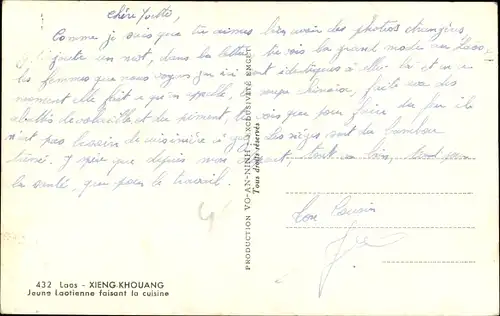 Chère Yvette,
Comme je sais que tu aimes bien avoir des photos étrangères
j'ajoute un mot, dans la lettre, tu vois la grand mode au Laos,
les femmes que nous voyons ici sont identiques à elle là et en ce
moment elle fait ce qu'on appelle, la soupe chinoise, faite avec des
de volaille et du piment, tu vois que pour faire du feu ils
n'ont pas besoin de cuisinière à gaz. Les sièges sont en bambou
J'espère que depuis mon tout va bien, tant pour
la santé, que pour le travail.
Ton Cousin
PRODUCTION VO-AN-NINH - EXCLUSIVITÉ EMCET
Tous droits réservés
432 Laos - XIENG-KHOUANG
Jeune Laotienne faisant la cuisine